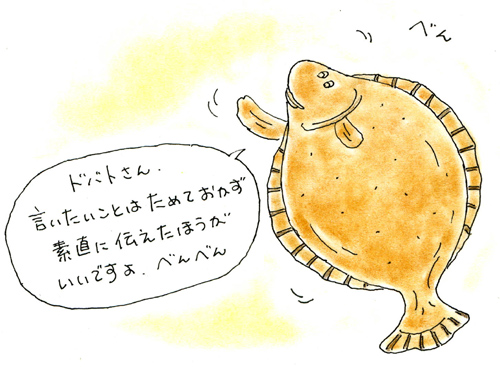 べん
ドバトさん.
言いたいことはためておかず
素直に伝えたほうが
いいですよ.べんべん